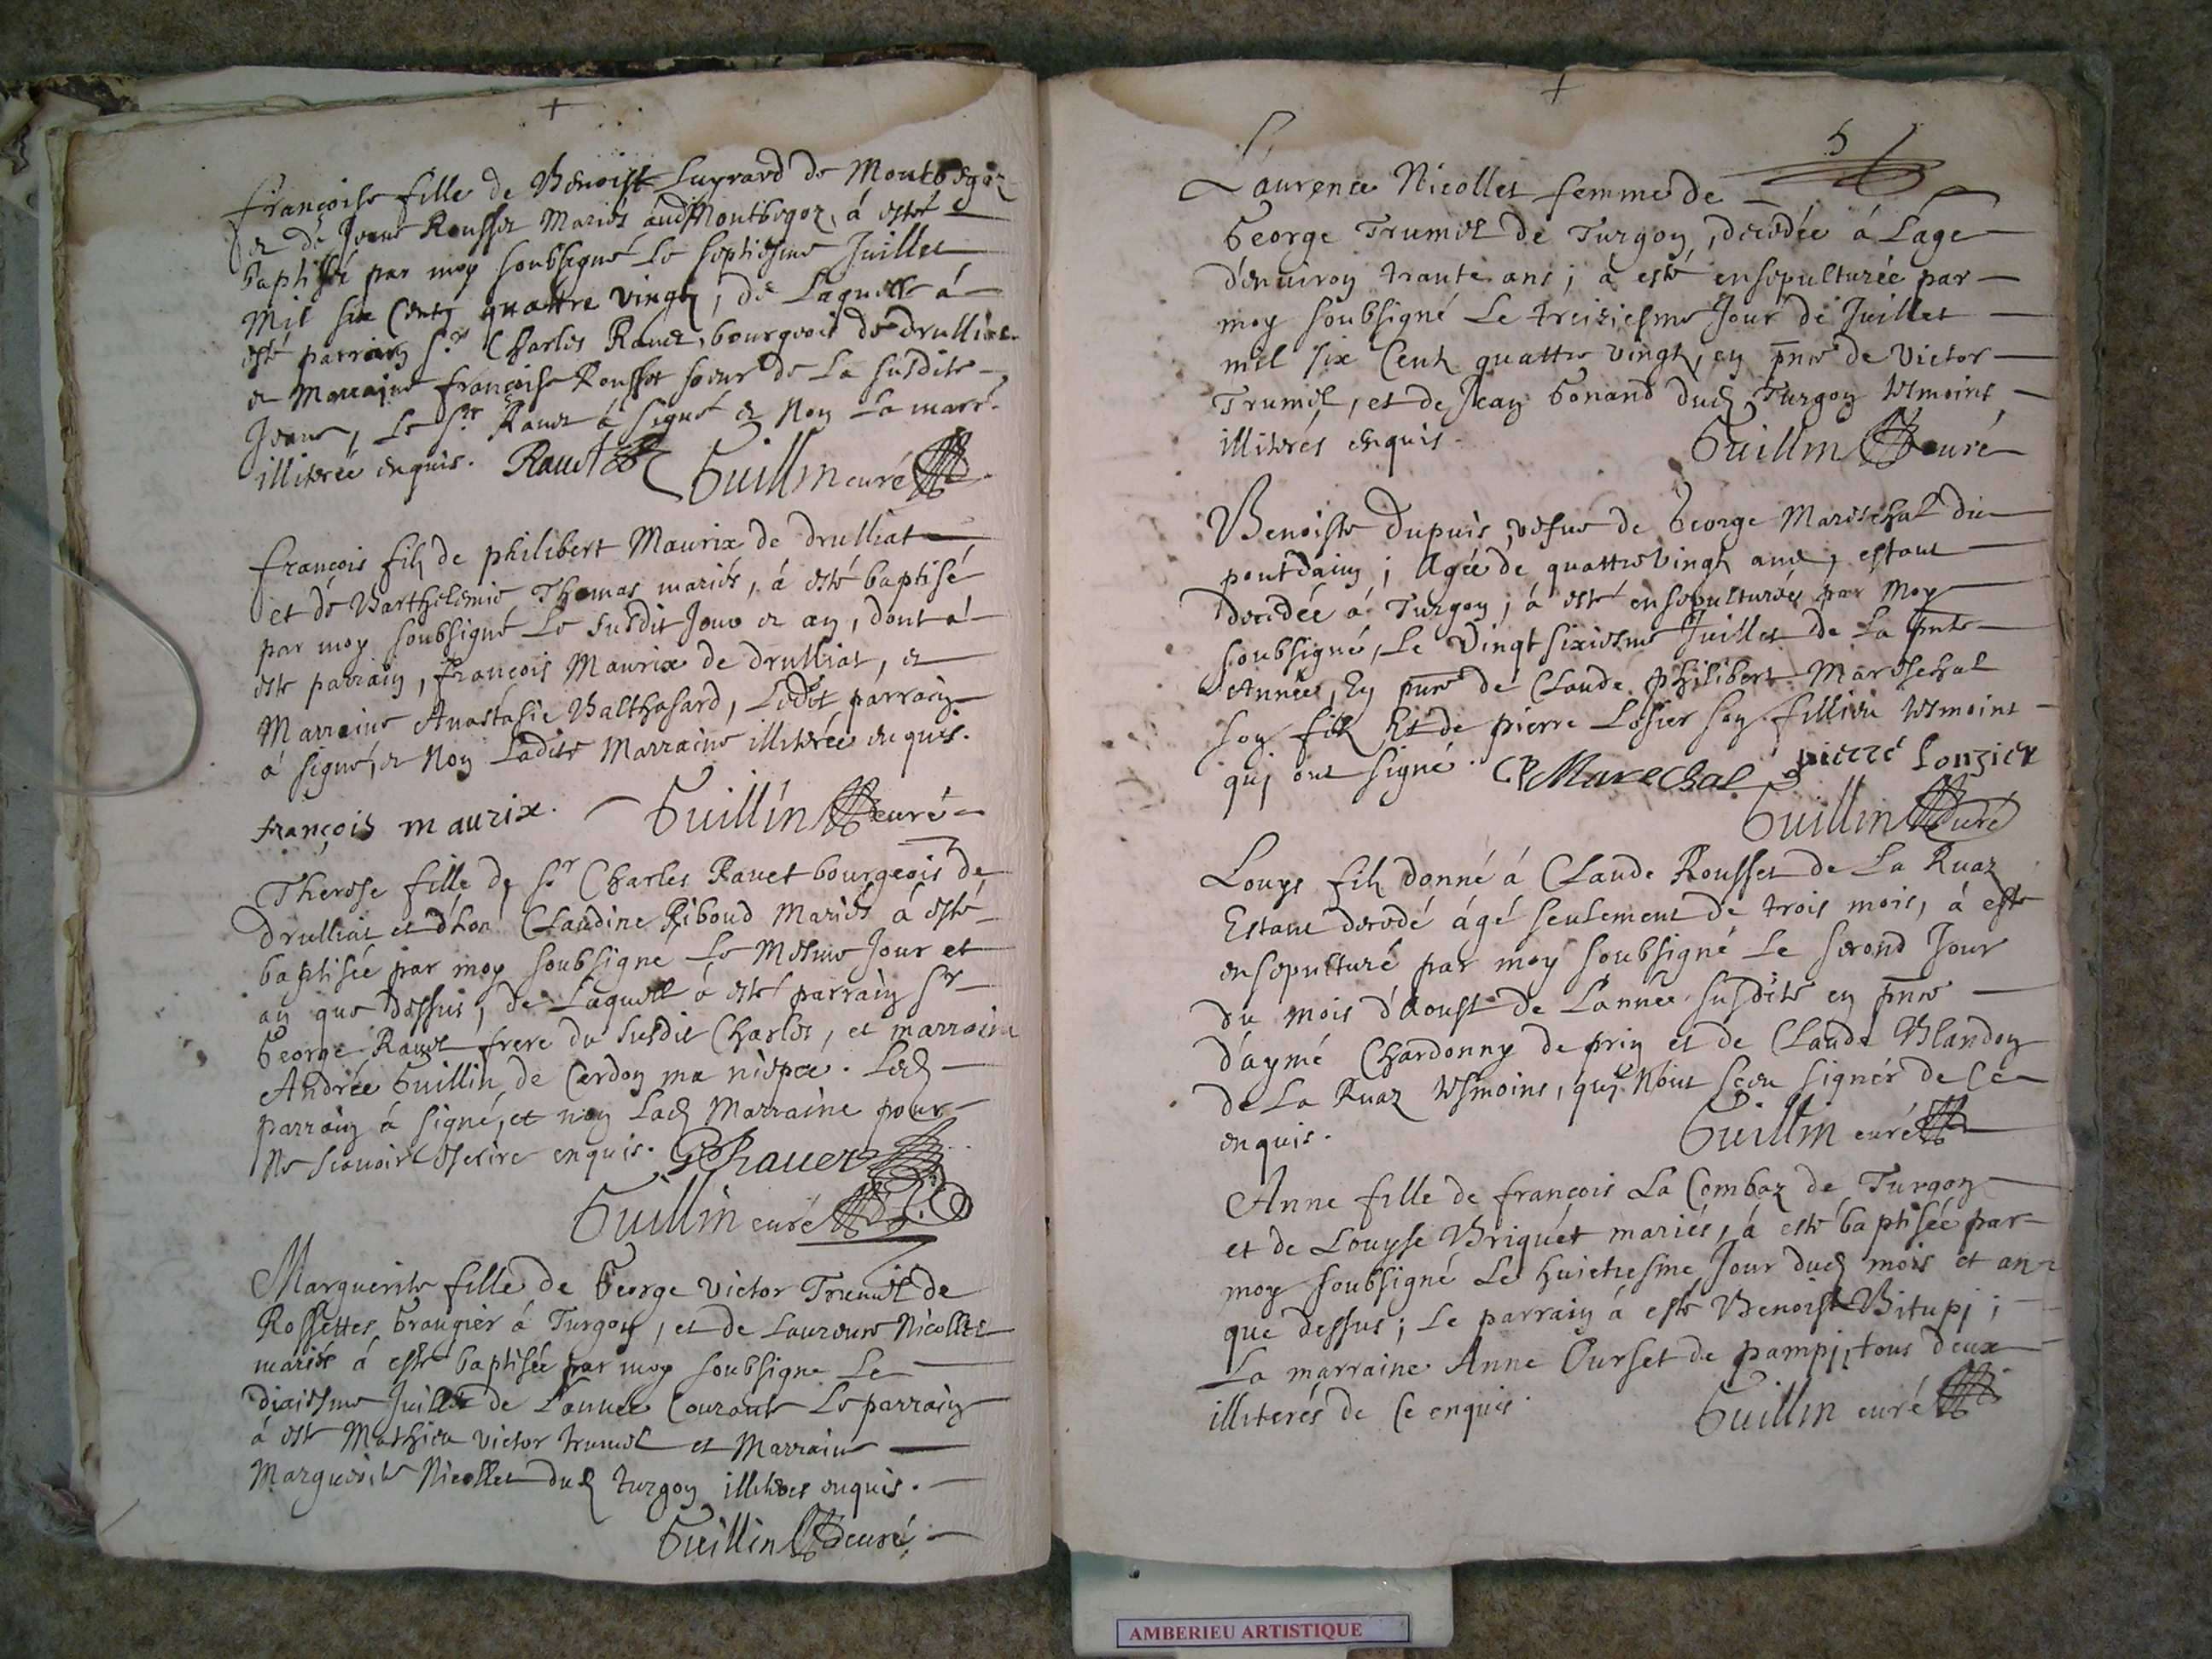 françoise fille de Benoist Luyrard de Montbegoz
et de Jeane Rousset Mariés aud Montbegoz, á esté
baptisée par moy soubsigné Le septiesme Juillet
Mil six Centz quattre vingtz, de Laquelle á
esté parrain sr Charles Rauet, bourgeois de drulliat
et Marraine françoise Rousset soeur de La susdite
Jeane, Le sr Rauet á signé et Non La marre
illiterée enquis. Rauet Guillin curé
françois filz de philibert Maurix de drulliat
et de Barthelemie Thomas mariés, á esté baptisé
par moy soubsigné Le susdit Jour et an, dont á
esté parrain, françois Maurix de drulliat, et
Marraine Anastasie Balthasard, Ledit parrain
á signé, et Non Ladite Marraine illiterée enquis.
françois maurix. Guillin curé
Therese fille de sr Charles Rauet bourgeois de
drulliat et d'hon Claudine Riboud Mariés á esté
baptisée par moy soubsigne Le Mesme Jour et
an que dessus, de Laquelle á esté parrain sr
George Rauet frere du susdit Charles, et marraine
Andrée Guillin de Cerdon ma niepce. Led
parrain á signé, et non Lad Marraine pour
Ne scauoir escrire enquis. G Rauet
Guillin curé
Marguerite fille de George Victor Trumel de
Rossettes Grangier á Turgon, et de Laurence Nicollet
mariés á esté baptisée par moy soubsigne Le
diziesme Juillet de L'année Courante Le parrain
á esté Mathieu Victor trumel et Marraine
Marguerite Nicollet dud turgon illiteres enquis.
Guillin curé
5
Laurence Nicollet femme de
George Trumel de Turgon, decedée á Lage
d'enuiron trante ans, á esté ensepulturée par
moy soubsigné Le treiziesme Jour de Juillet
mil six Centz quattre vingtz, en pnce de Victor
Trumel, et de Jean Gonand dud Turgon tesmoins
illiterés enquis. Guillin curé
Benoiste Dupuis, vefue de George Mareschal du
pontdain; Agée de quattre vingtz ans, estant
decedée á Turgon, á esté ensepulturée par Moy
soubsigné, Le Vingt sixiesme Juillet de La pnte
Année, En pnce de Claude philibert Mareschal
son filz Et de pierre Losier son fillieu tesmoins
quj ont signé. CP Marechal pierre Lonzier
Guillin curé
Louys filz donné á Claude Rousset de La Ruaz
Estant decedé ágé seulement de trois mois, á esté
ensepulturé par moy soubsigné Le second Jour
du mois d'Aoust de L'année susdite en pnce
d'aymé Chardonny de prin et de Claude Blandon
de La Ruaz tesmoins, quj N'ont sceu signér de Ce
enquis. Guillin curé
Anne fille de françois La Combaz de Turgon
et de Louyse Briquét mariés, á esté baptisée par
moy soubsigné Le huictiesme Jour dud mois et an
que dessus; Le parrain á esté Benoist Bitupj;
La marraine Anne Ourset de pampj, tous deux
illiterés de Ce enquis. Guillin curé
AMBERIEU ARTISTIQUE